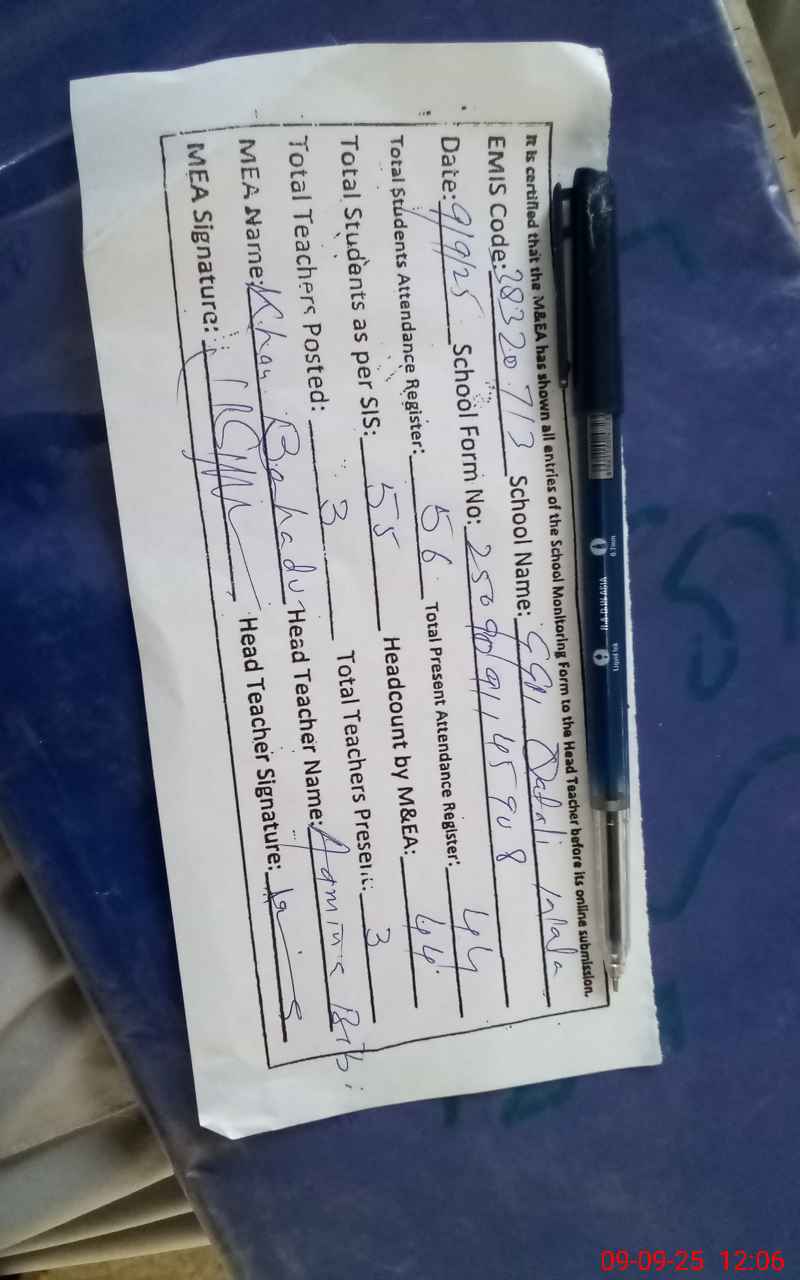 It is certified that the M&EA has shown all entries of the School Monitoring Form to the Head Teacher before its online submission.
EMIS Code: 38320713 School Name: Wala
Date: 9/9/25 School Form No:
Total Students Attendance Register: 56 Total Present Attendance Register: 44
Total Students as per SIS: 55 Headcount by M&EA: 44
Total Teachers Posted: 3 Total Teachers Present: 3
MEA Name: Khan Bahadur Head Teacher Name: Bibi
MEA Signature: Head Teacher Signature:
09-09-25 12:06